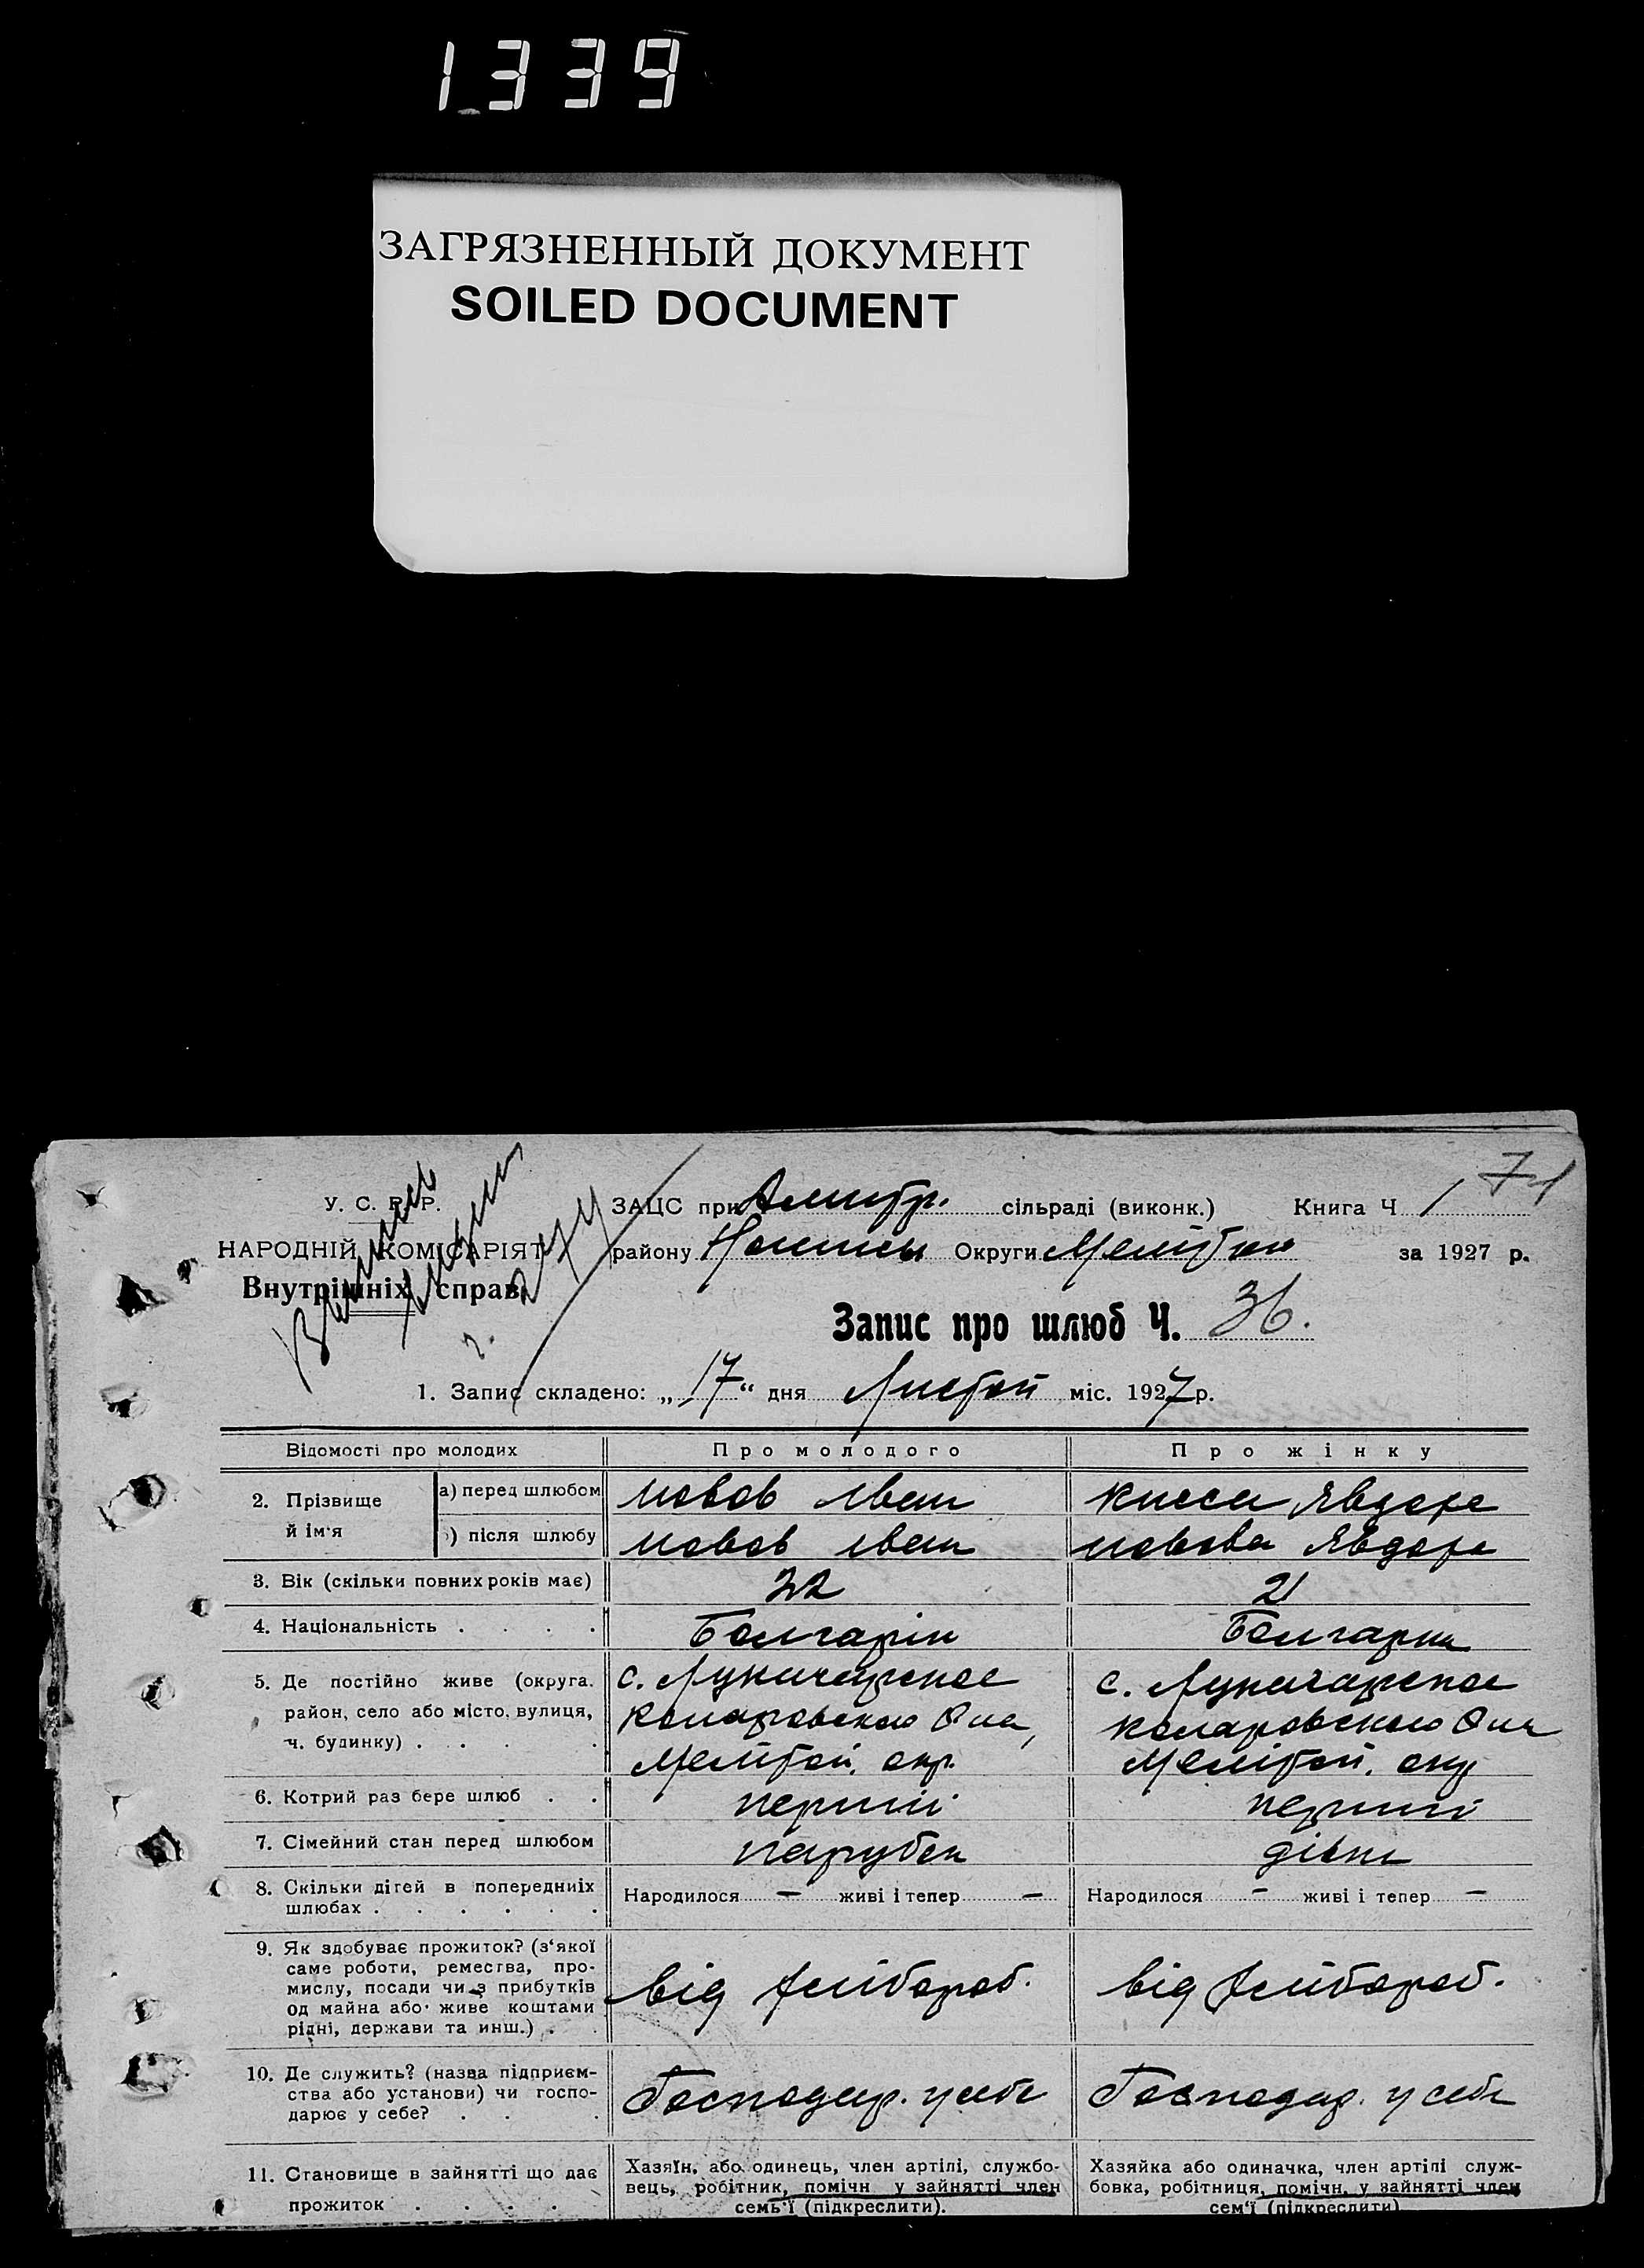 1339
ЗАГРЯЗНЕННЫЙ ДОКУМЕНТ
SOILED DOCUMENT
71
У. С. Р. Р. ЗАЦС при Дмитр. сільраді (виконк.) Книга Ч 1
НАРОДНІЙ КОМІСАРІЯТ району Округи за 1927 р.
Внутрішніх справ
Запис про шлюб Ч. 36.
1. Запис складено: „17“ дня міс. 1927 р.
Відомості про молодих Про молодого Про жінку
2. Прізвище й ім'я а) перед шлюбом Новов Іван Явдоха
) після шлюбу Новов Іван Новова Явдоха
3. Вік (скільки повних років має) 22 21
4. Національність . . . . Болгарін Болгарка
5. Де постійно живе (округа. с. Луначарское с. Луначарское
район, село або місто, вулиця, Коларовского Р-на, Коларовского Р-на
ч. будинку) . . . окр. окр
6. Котрий раз бере шлюб . . перший перший
7. Сімейний стан перед шлюбом парубок дівка
8. Скільки дітей в попередніх Народилося — живі і тепер — Народилося — живі і тепер —
шлюбах . . . . . .
9. Як здобуває прожиток? (з'якої
саме роботи, ремества, про-
мислу, посади чи з прибутків від хлібороб. від хлібороб.
од майна або живе коштами
рідні, держави та инш.) . .
10. Де служить? (назва підприєм-
ства або установи) чи госпо- Господар. у себе Господар. у себе
дарює у себе? . . .
11. Становище в зайнятті що дає Хазяїн, або одинець, член артілі, службо- Хазяйка або одиначка, член артілі служ-
прожиток . . . . вець, робітник, помічн у зайнятті член бовка, робітниця, помічн. у зайнятті член
семь'ї (підкреслити). сем'ї (підкреслити)